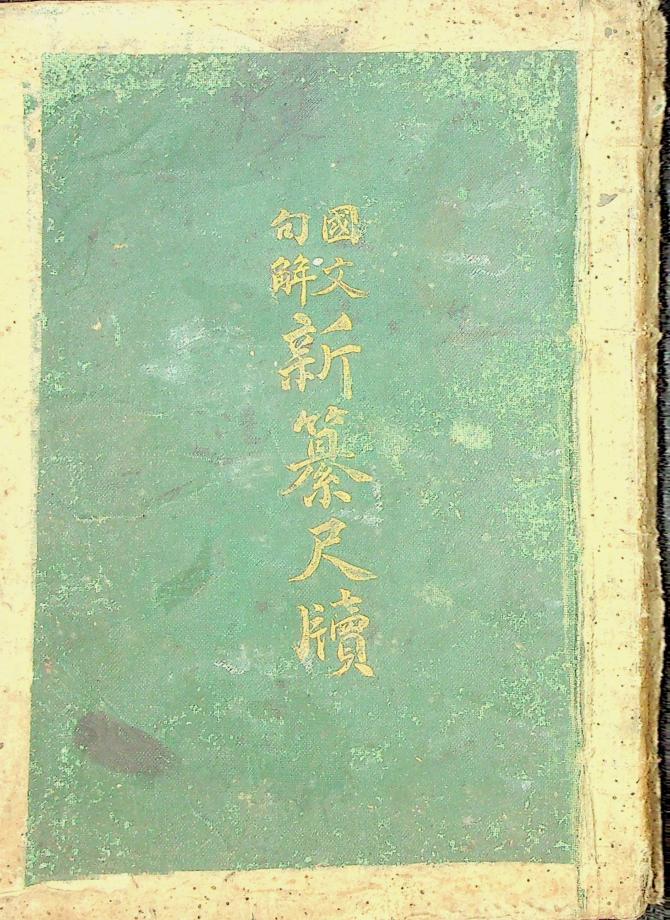 國文
句解
新纂尺牘